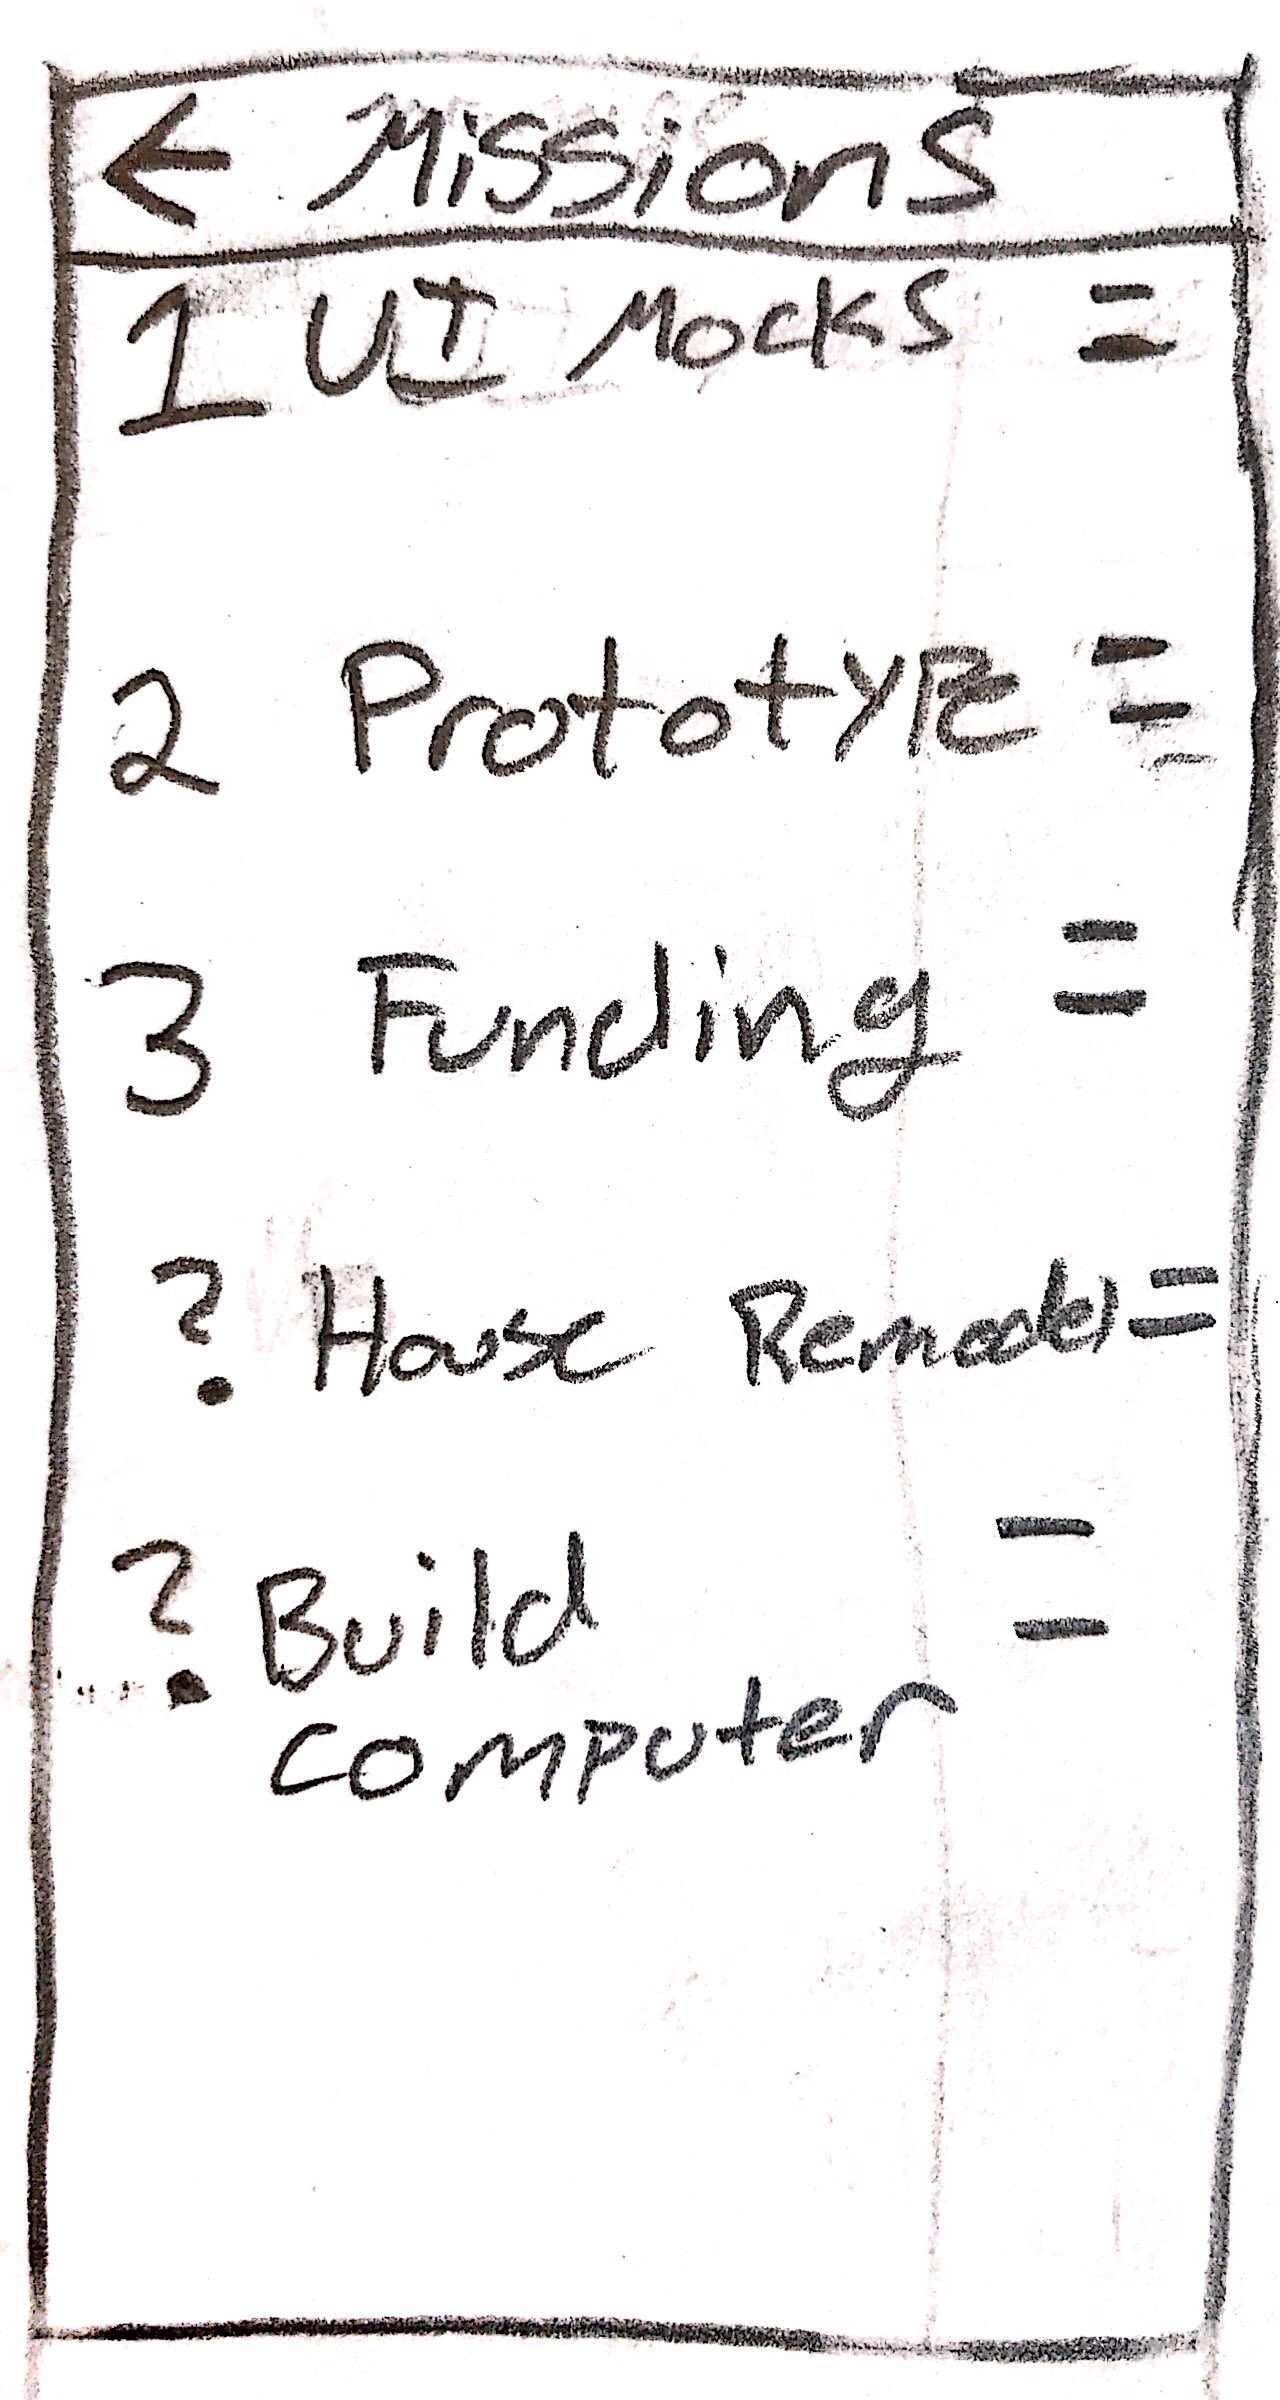 ← Missions
1 UI Mocks =
2 Prototype =
3 Funding =
? House Remodel =
? Build =
computer